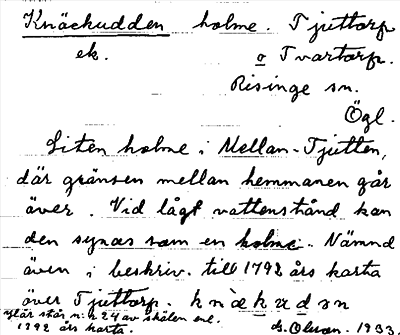 Knäckudden holme. Tjuttorp
ek. o Tvartorp.
Risinge sn.
Ögl.
Liten holme i Mellan-Tjutten,
där gränsen mellan hemmanen går
över. Vid lågt vattenstånd kan
den synas som en holme. Nämnd
även i beskriv. till 1792 års karta
över Tjuttorp.
står n:r 24 av skälen enl.
1792 års karta. G. Olsson. 1933.